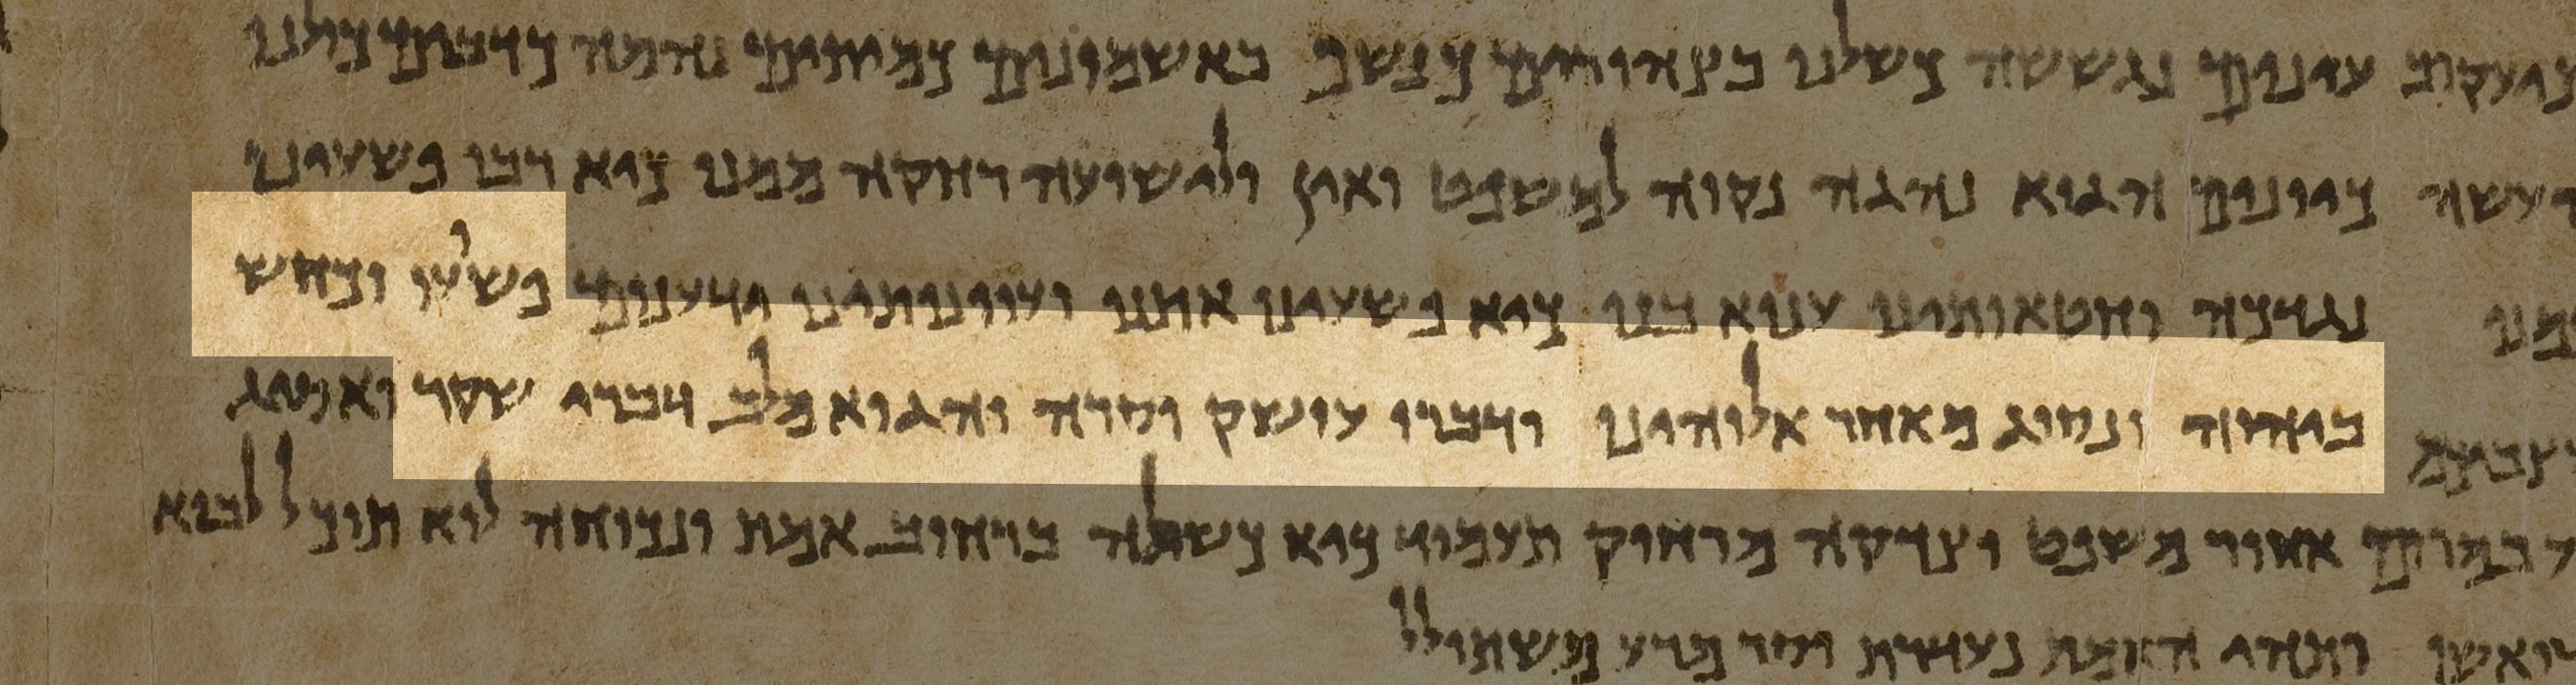 עינים נגששה כשלנו בצהורים כנשף באשמונים כמתים נהמה כדובים כולנו
כיונים הגוא נהגה נקוה למשפט ואין ולישועה רחקה ממנו כיא רבו פשעינו
נגדכה וחטאותינו ענוא בנו כיא פשעינו אתנו ועוונותינו ידענום פשעו וכחש
ביהוה ונסוג מאחר אלוהינו ודברו עושק וסרה והגוא מלב דברי שקר ואסיג
אחור משפט וצדקה מרחוק תעמוד כיא כשלה ברחוב אמת ונכוחה לוא תוכל לבוא
ותהי האמת נעדרת וסר מרע משתולל